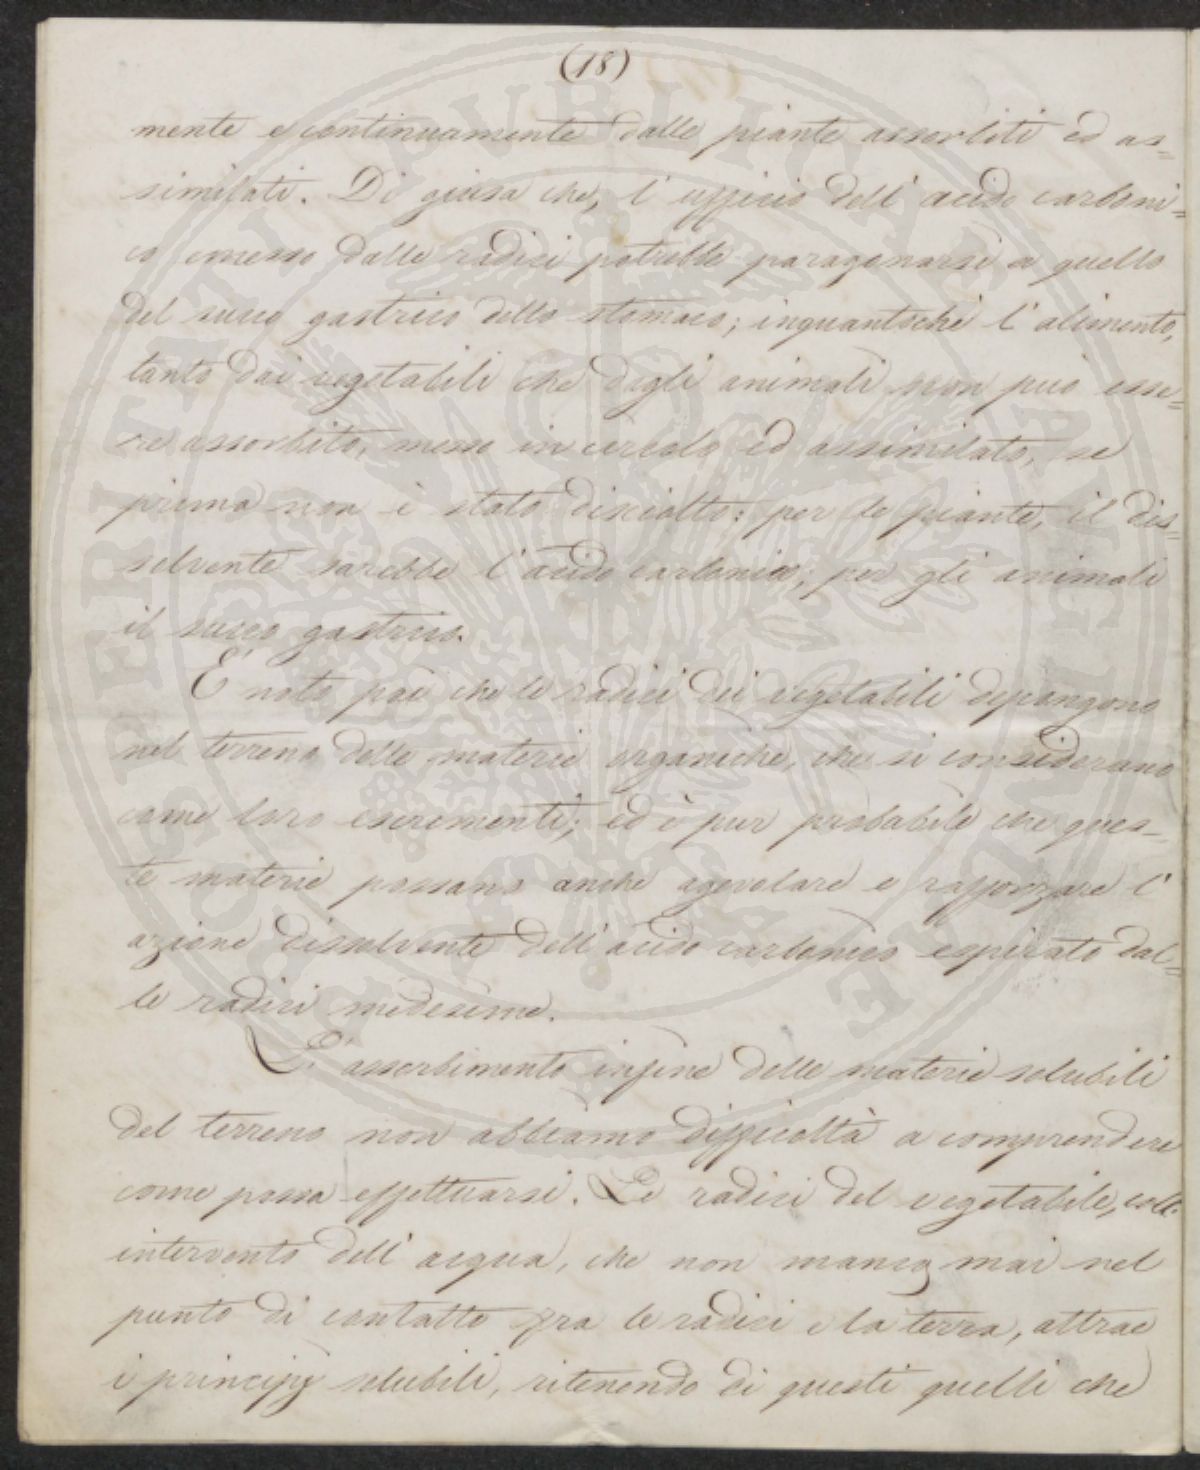 (18)
mente e continuamente dalle piante assorbiti ed as=
similati. Di guisa che, l'ufficio dell'acido carboni=
co emesso dalle radici potrebbe paragonarsi a quello
del succo gastrico dello stomaco; inquantochè l'alimento,
tanto dai vegetabili che dagli animali non può esse=
re assorbito, messo in circolo ed assimilato, se
prima non è stato disciolto: per le piante, il dis=
solvente sarebbe l'acido carbonico; per gli animali
il succo gastrico.
È noto poi che le radici dei vegetabili depongono
nel terreno delle materie organiche, che si considerano
come loro escrementi; ed è pur probabile che ques=
te materie possano anche agevolare e rafforzare l'
azione dissolvente dell'acido carbonico espirato dal=
le radici medesime.
L'assorbimento infine delle materie solubili
del terreno non abbiamo difficoltà a comprendere
come possa effettuarsi. Le radici del vegetabile, coll'
intervento dell'acqua, che non manca mai nel
punto di contatto fra le radici e la terra, attrae
i principj solubili, ritenendo di questi quelli che